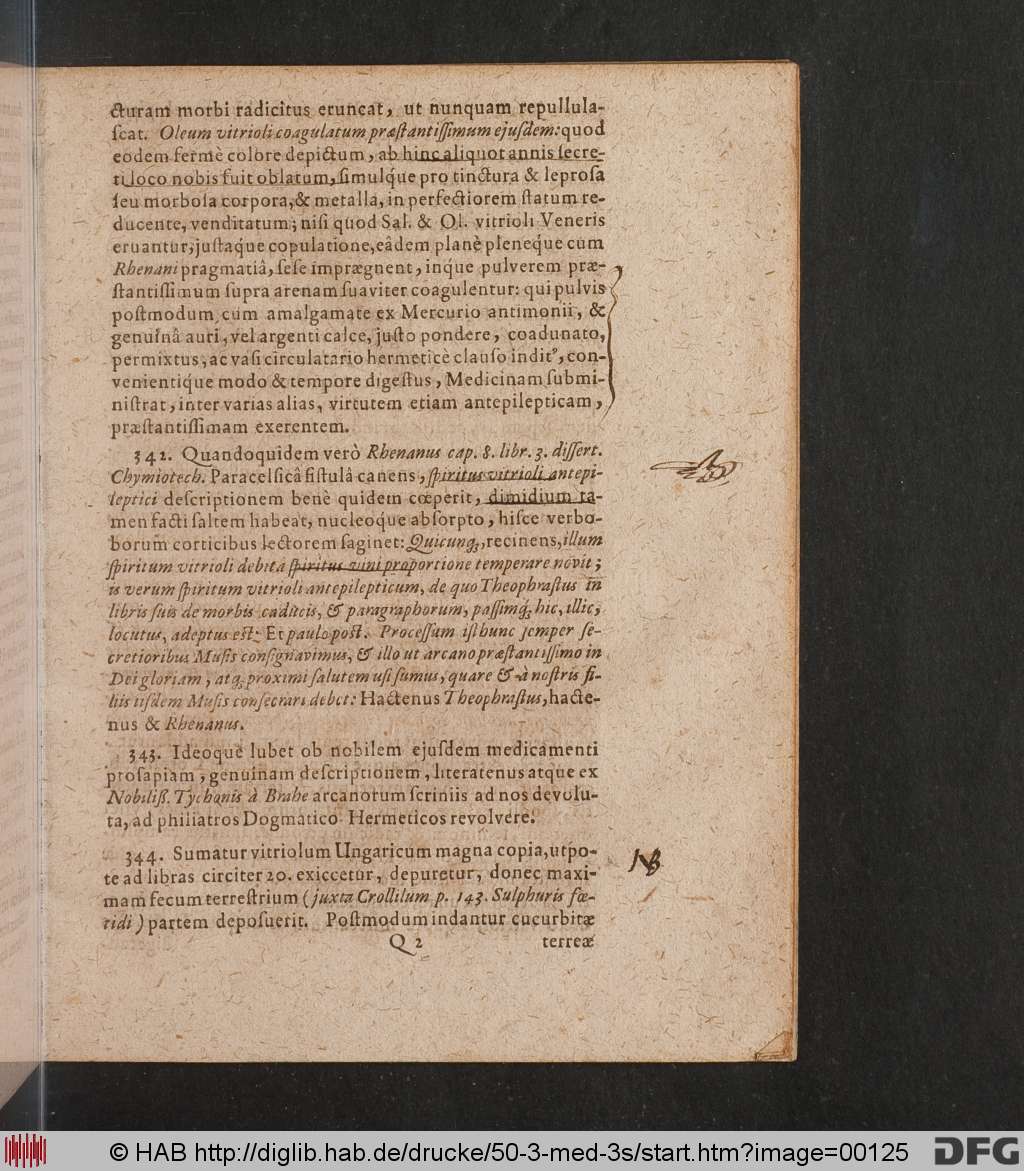 cturam morbi radicitus eruncat, ut nunquam repullula-
ſcat. Oleum vitrioli coagulatum præſtantiſſimum ejuſdem: quod
eodem fermè colore depictum, ab hinc aliquot annis ſecre-
ti loco nobis fuit oblatum, ſimulq́ue pro tinctura & leproſa
ſeu morboſa corpora, & metalla, in perfectiorem ſtatum re-
ducente, venditatum; niſi quòd Sal. & Ol. vitrioli Veneris
eruantur, juſtaq́ue copulatione, eâdem planè pleneq́ue cum
Rhenani pragmatiâ, ſeſe imprægnent, inq́ue pulverem præ-
ſtantiſſimum ſupra arenam ſuaviter coagulentur: qui pulvis
poſtmodum cum amalgamate ex Mercurio antimonii, &
genuinâ auri, vel argenti calce, juſto pondere, coadunato,
permixtus, ac vaſi circulatario hermeticè clauſo inditꝰ, con-
venientiq́ue modo & tempore digeſtus, Medicinam ſubmi-
niſtrat, inter varias alias, virtutem etiam antepilepticam,
præſtantiſſimam exerentem.
342. Quandoquidem verò Rhenanus cap. 8. libr. 3. diſſert.
Chymiotech. Paracelſicâ fiſtulâ canens, ſpiritus vitrioli antepi-
leptici deſcriptionem benè quidem cœperit, dimidium ta-
men facti ſaltem habeat, nucleoque abſorpto, hiſce verbo-
borum corticibus lectorem ſaginet: Quicunq;, recinens, illum
ſpiritum vitrioli debitâ ſpiritus vini proportione temperare novit;
is verum ſpiritum vitrioli antepilepticum, de quo Theophraſtus in
libris ſuis de morbis caducis, & paragraphorum, paſſimq; hic, illic,
locutus, adeptus eſt: Et paulo poſt. Proceſſum iſthunc ſemper ſe-
cretioribus Muſis conſignavimus, & illo ut arcano præſtantiſſimo in
Dei gloriam, atq; proximi ſalutem uſi ſumus, quare & à noſtris fi-
liis iiſdem Muſis conſecrari debet: Hactenus Theophraſtus, hacte-
nus & Rhenanus.
343. Ideoque lubet ob nobilem ejuſdem medicamenti
proſapiam, genuinam deſcriptionem, literatenus atque ex
Nobiliß. Tychonis à Brahe arcanorum ſcriniis ad nos devolu-
ta, ad philiatros Dogmatico Hermeticos revolvere.
344. Sumatur vitriolum Ungaricum magna copia, utpo-
te ad libras circiter 20. exiccetur, depuretur, donec maxi-
mam fecum terreſtrium (juxta Crollilum p. 143. Sulphuris fœ-
tidi) partem depoſuerit. Poſtmodum indantur cucurbitæ
Q 2 terreæ
NB
© HAB http://diglib.hab.de/drucke/50-3-med-3s/start.htm?image=00125
DFG